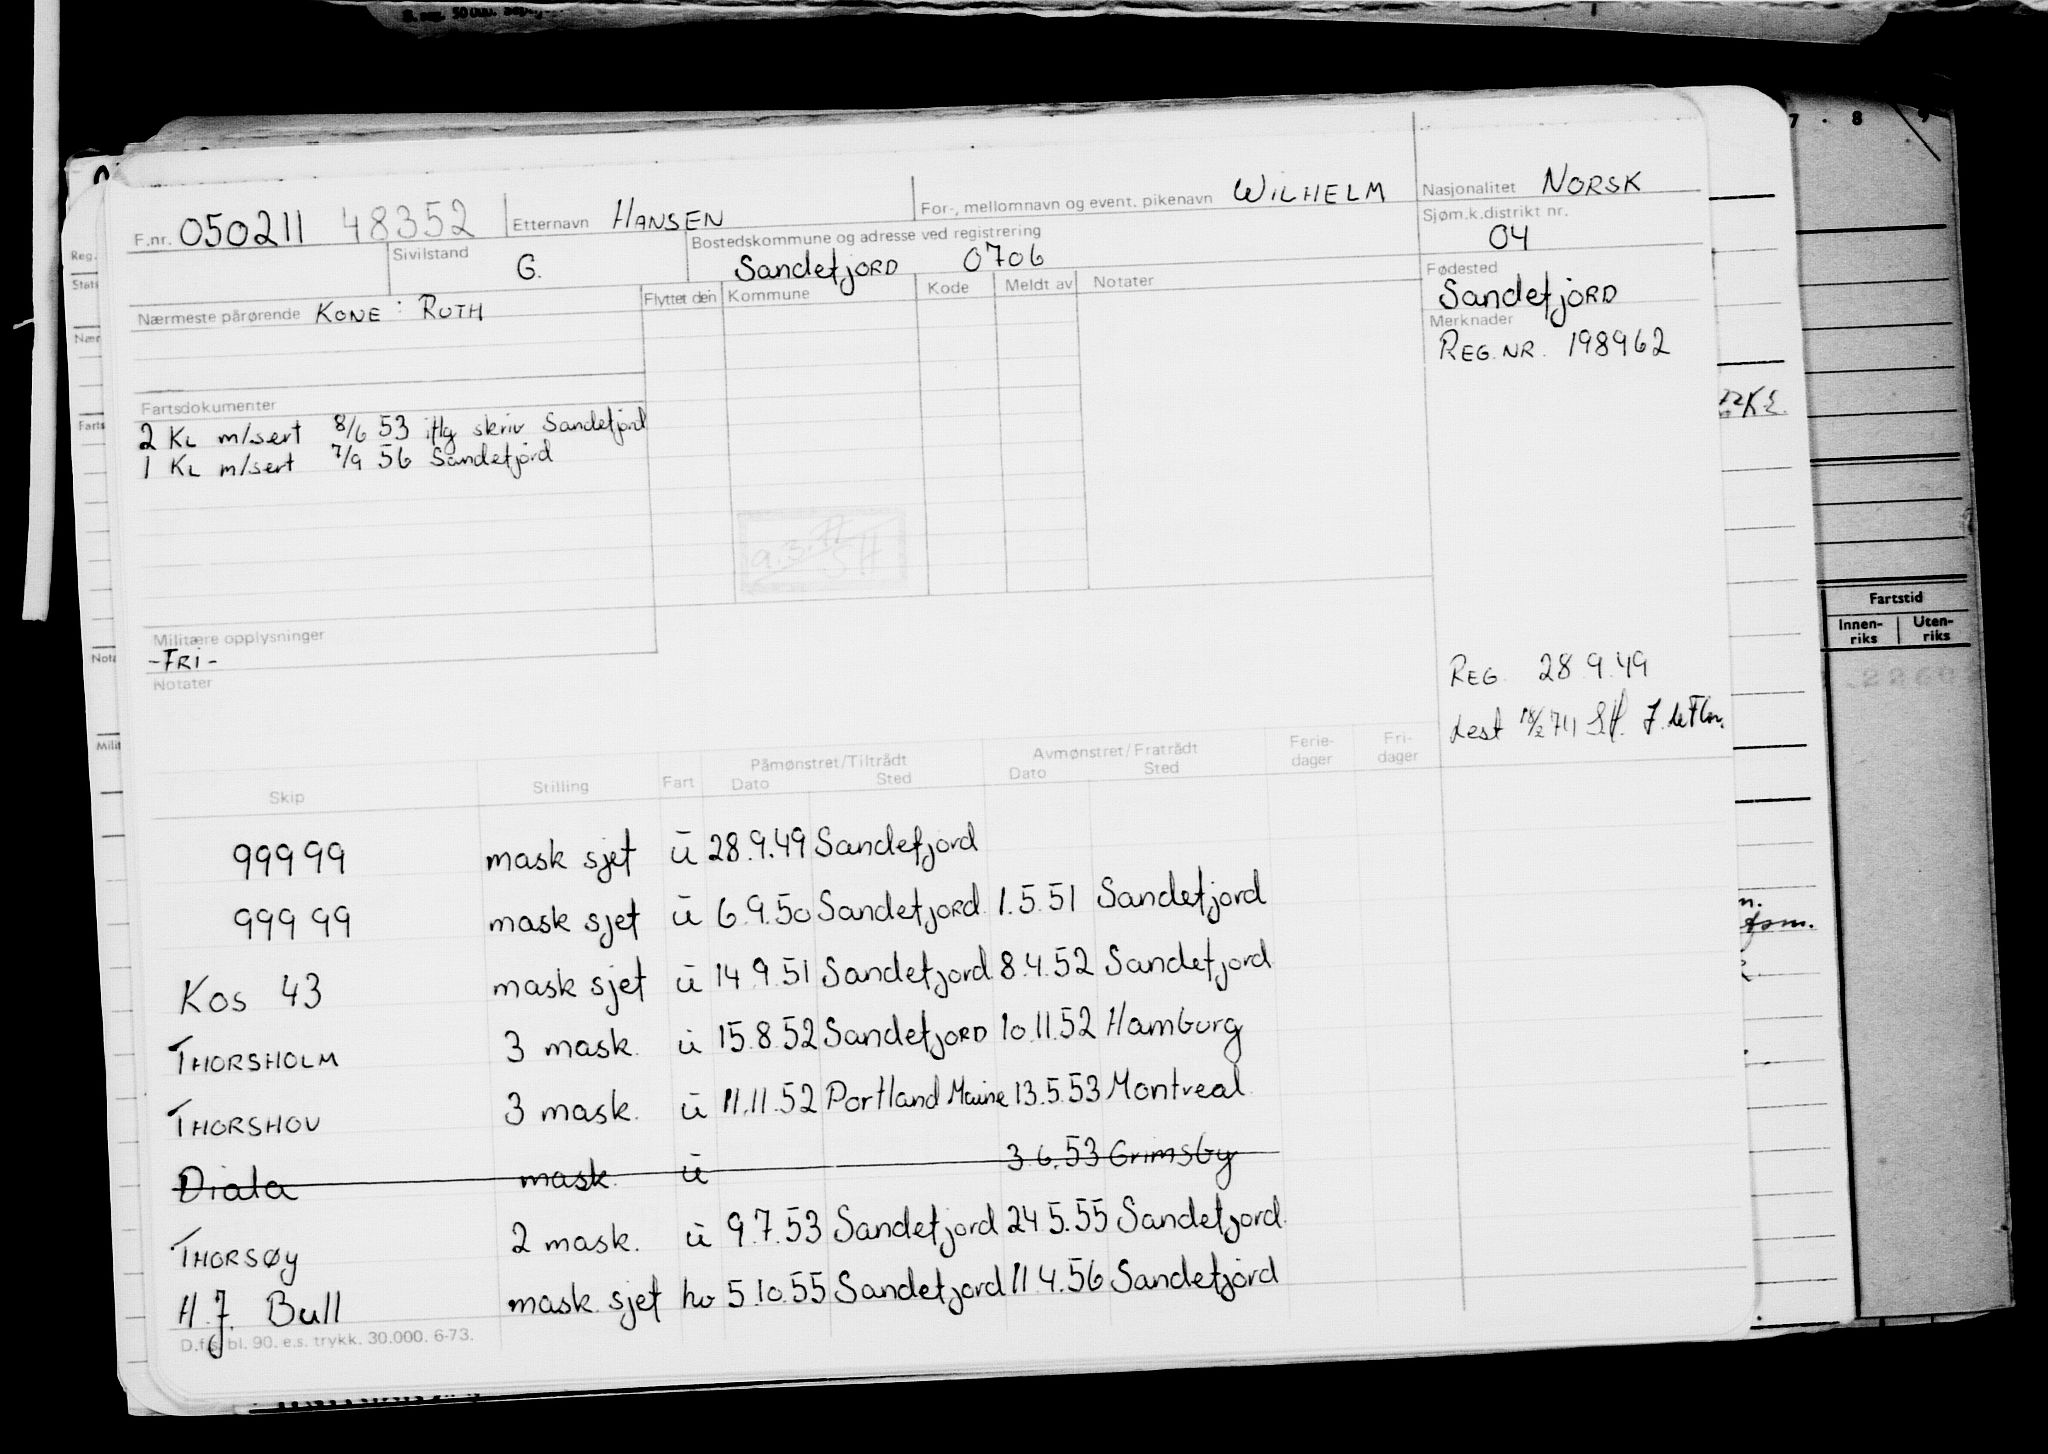 F.nr. 050211 48352 Etternavn HANSEN For-, mellomnavn og event. pikenavn WILHELM Nasjonalitet NORSK
Sivilstand G. Bostedskommune og adresse ved registrering Sandefjord 0706 Sjøm.k.distrikt nr. 04
Nærmeste pårørende KONE: RUTH Flyttet den Kommune Kode Meldt av Notater Fødested Sandefjord
Merknader
REG.NR. 198962
Fartsdokumenter
2 KL m/sert 8/6 53 iflg skriv Sandefjord
1 KL m/sert 7/9 56 Sandefjord
Militære opplysninger
-FRI-
Notater
REG. 28.9.49
Lest 18/2 74
Skip Stilling Fart Påmønstret/Tiltrådt Dato Sted Avmønstret/Fratrådt Dato Sted Ferie-dager Fri-dager
99999 mask sjef ū 28.9.49 Sandefjord
99999 mask sjef ū 6.9.50 Sandefjord 1.5.51 Sandefjord
Kos 43 mask sjef ū 14.9.51 Sandefjord 8.4.52 Sandefjord
THORSHOLM 3 mask. ū 15.8.52 Sandefjord 10.11.52 Hamburg
THORSHOV 3 mask. ū 11.11.52 Portland Maine 13.5.53 Montreal
Diala mask. ū 3.6.53 Grimsby
THORSØY 2 mask. ū 9.7.53 Sandefjord 24.5.55 Sandefjord
H.J. Bull mask. sjef hv 5.10.55 Sandefjord 11.4.56 Sandefjord
D.f.s. bl. 90. e.s. trykk. 30.000. 6-73.
7 8 9
Fartstid
Innen-riks Uten-riks